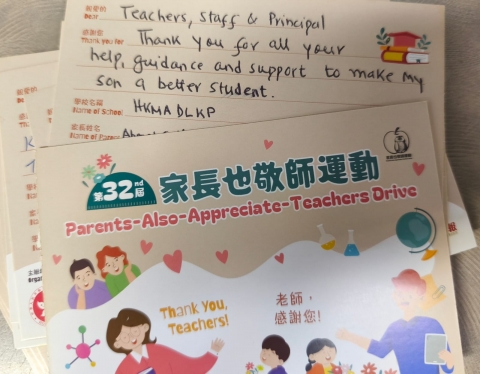 親愛的
Dear Teachers, Staff & Principal
感謝您
Thank you for Thank you for all your
help, guidance and support to make my
son a better student.
學校名稱
Name of School HKMA DLKP
家長姓名
Name of Parent
第32nd屆
家長也敬師運動
Parents-Also-Appreciate-Teachers Drive
Thank You,
Teachers!
老師，
感謝您!